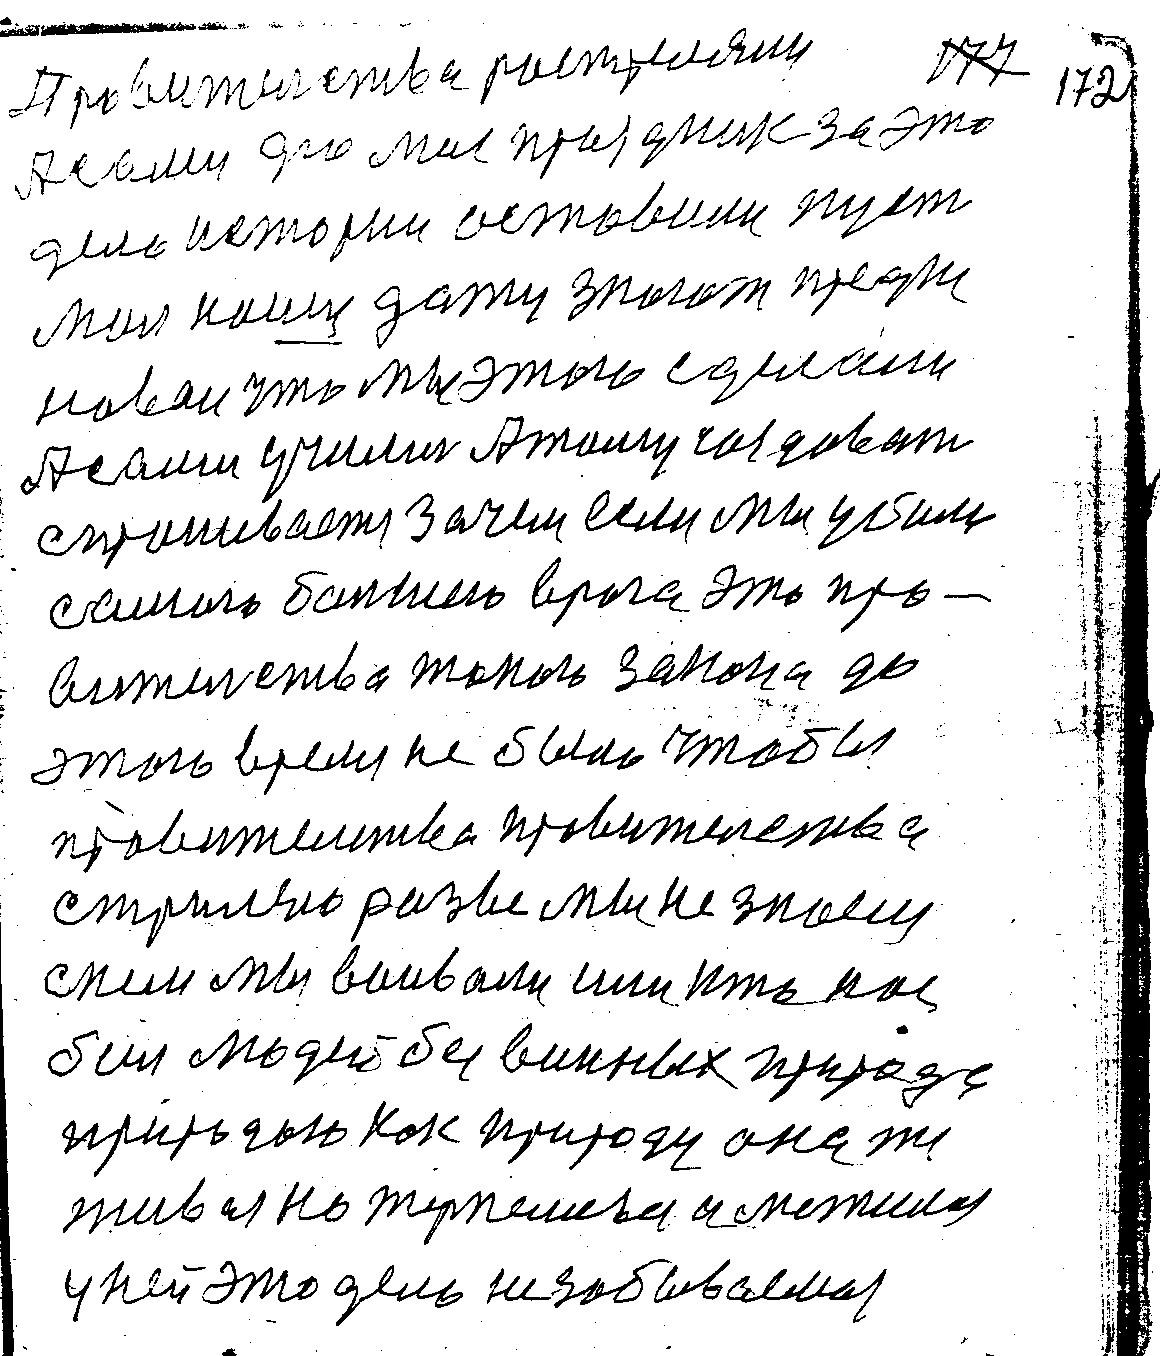 177 172
Правителства растреляли
А сами дю мае праздник за это
дело истории оставили пуст
мол нашу дату знают преди
новаи что мы этого сделали
А сами учились Атому
спрашивает зачем если мы убили
самого болшого врага это пра—
вителства такого закона до
этого время не было чтобы
правителства правителства
стриляю разве мы не знаем
скем мы воивали или кто нас
бил людей без винных природа
природою как природу она же
живая но терпелива и
у ней это дело незабываемая